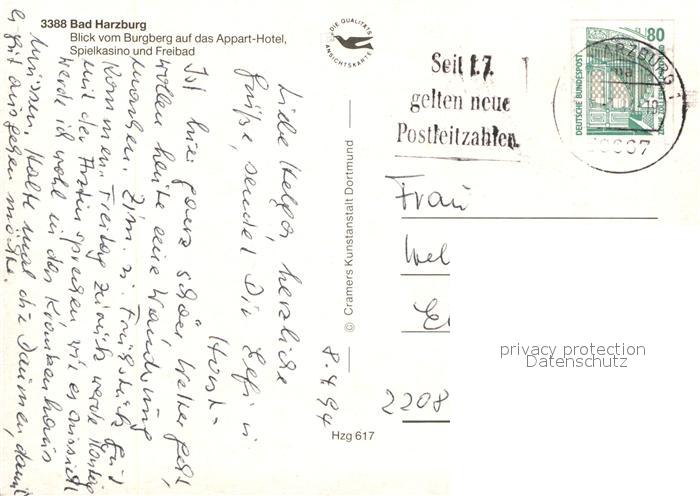 3388 Bad Harzburg
Blick vom Burgberg auf das Appart-Hotel,
Spielkasino und Freibad
DIE QUALITÄTS
ANSICHTSKARTE
Seit 1.7.
gelten neue
Postleitzahlen.
DEUTSCHE BUNDESPOST
80
ARZBURG 1
38667
© Cramers Kunstanstalt Dortmund
Hzg 617
Frau
Hel
2208
privacy protection
Datenschutz
8.4.94
Liebe Helga, herzliche
Grüße, sendet Dir Elfi u
Horst.
Ist hier ganz schöner Wetter
wollen heute eine Wandrung
machen. Zim. u. Frühstück gut
Kommen Freitag zurück werde Montag
mit der Ärztin sprechen wie es aussieht
werde ich wohl in das Krankenhaus
müssen, Halte mal die Daumen, damit
es gut ausgehen möchte.